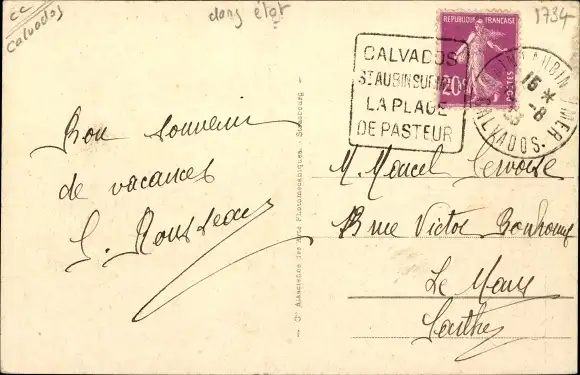 CC
Calvados
dans état
1734
REPUBLIQUE FRANÇAISE
20c
POSTES
CALVADOS
ST AUBIN SUR MER
LA PLAGE
DE PASTEUR
ST AUBIN S MER
15 *
-8
33
CALVADOS.
Bon souvenir
de vacances
G. Rousseau
M. Marcel Levoise
rue Victor Bonhomme
Le Mans
Sarthe
— Cie Alsacienne des Arts Photomécaniques, Strasbourg —